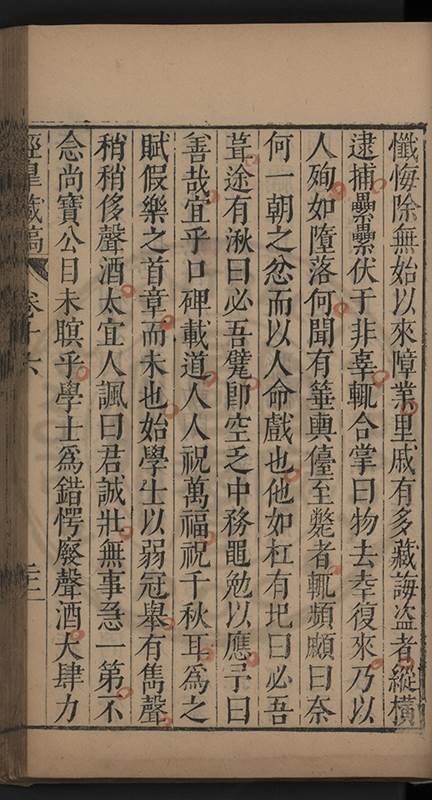 懺悔除無始以來障業里戚有多藏誨盗者縱橫
逮捕纍纍伏于非辜輒合掌曰物去幸復來乃以
人殉如墮落何聞有箠輿儓至斃者輒頻顣曰奈
何一朝之忿而以人命戲也他如杠有圯曰必吾
葺途有湫曰必吾甓卽空乏中務黽勉以應予曰
善哉宜乎口碑載道人人祝萬福祝千秋耳爲之
賦假樂之首章而未也始學士以弱冠舉有雋聲
稍稍侈聲酒太宜人諷曰君誠壯無事急一第不
念尚寶公目未瞑乎學士爲錯愕廢聲酒大肆力
經皐藏稿
卷十六
二十一